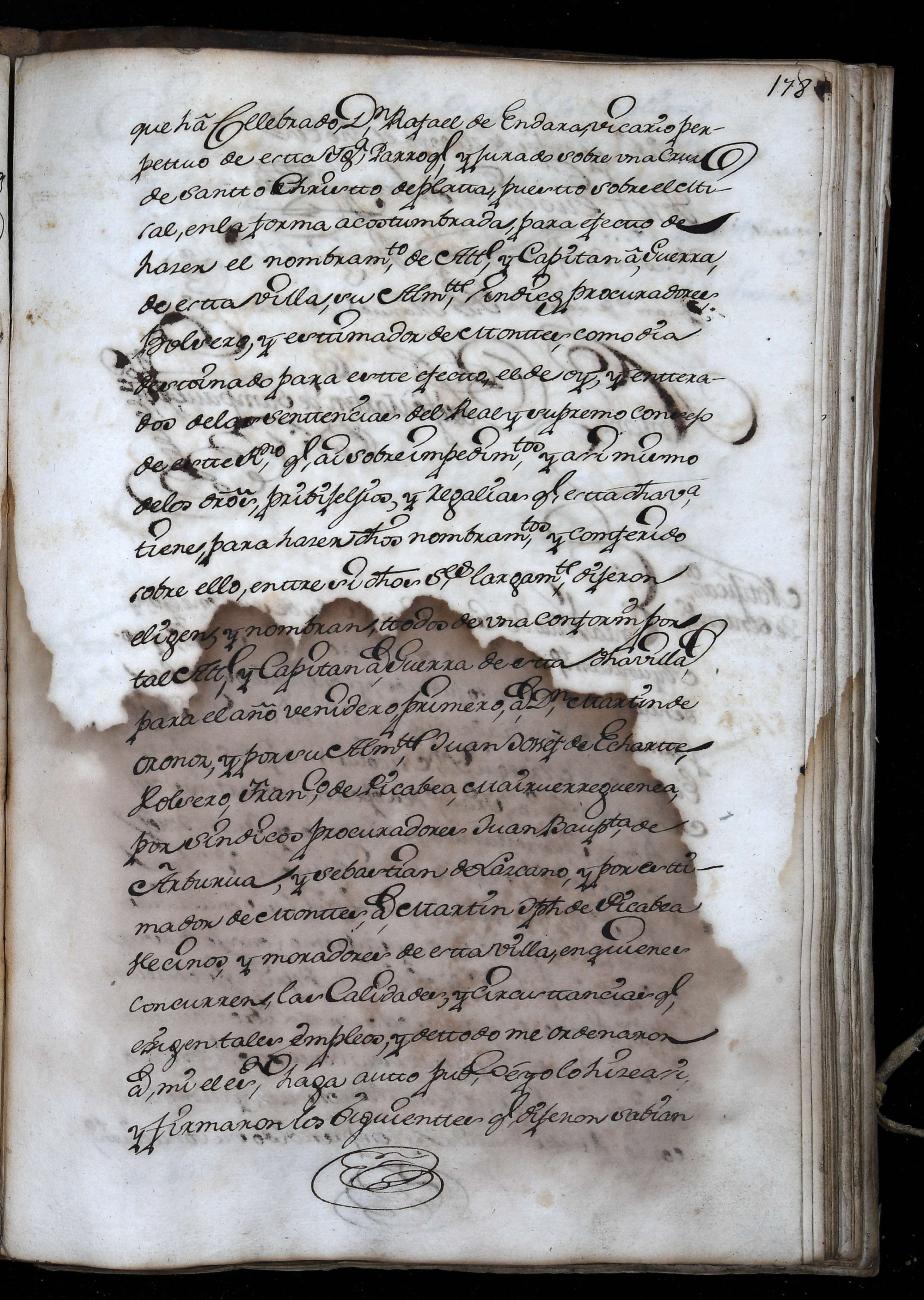 178
que hã Cellebrado, Dn. Rafael de Endara, vicario per-
petuo de estta Ygª. Parroql. y Jurado sobre vna Cruz
de Santto Christto de platta, puestto sobre el Mi-
sal, en la forma acostumbrada, para efectto de
hazer el nombramto. de Alle. y Capitan â Guerra,
de estta Villa, su Thentte. Sindicos procuradores,
Bolsero, y estimador de Monttes, como dia
desttinado para estte efectto, el de oy, y enttera-
dos de las Senttencias del Real y supremo Consejo
de estte Rno. ql. ai sobre impedimtos. y asi mismo
de los drõs, pribiljios, y Regalias ql. estta dha va.
tiene, para hazer dhos nombramtos. y conferido
sobre ello, enttre si dhos Sres. largamte. dijeron
eligen, y nombran, ttodos de vna conform. por
tal Alle. y Capitan â Guerra de estta dha villa,
para el año venidero primero, â Dn. Martin de
oronoz, y por su Thentte. Juan Joseph de Echartte,
Bolsero, Franco. de Picabea, Mairuerreguenea,
por Sindicos procuradores Juan Bauptta. de
Arburua, y Sebastian de Lazcano, y por estti-
mador de Monttes, â Martin Jph. de Picabea
Vecinos, y moradores de estta Villa, en quienes
concurren, las Calidades, y Circusttancias ql.
exigen tales empleos, y de ttodo me ordenaron
â mi el esno. haga autto pubco. é yo lo hize asi,
y firmaron los Siguienttes ql. dijeron sabian